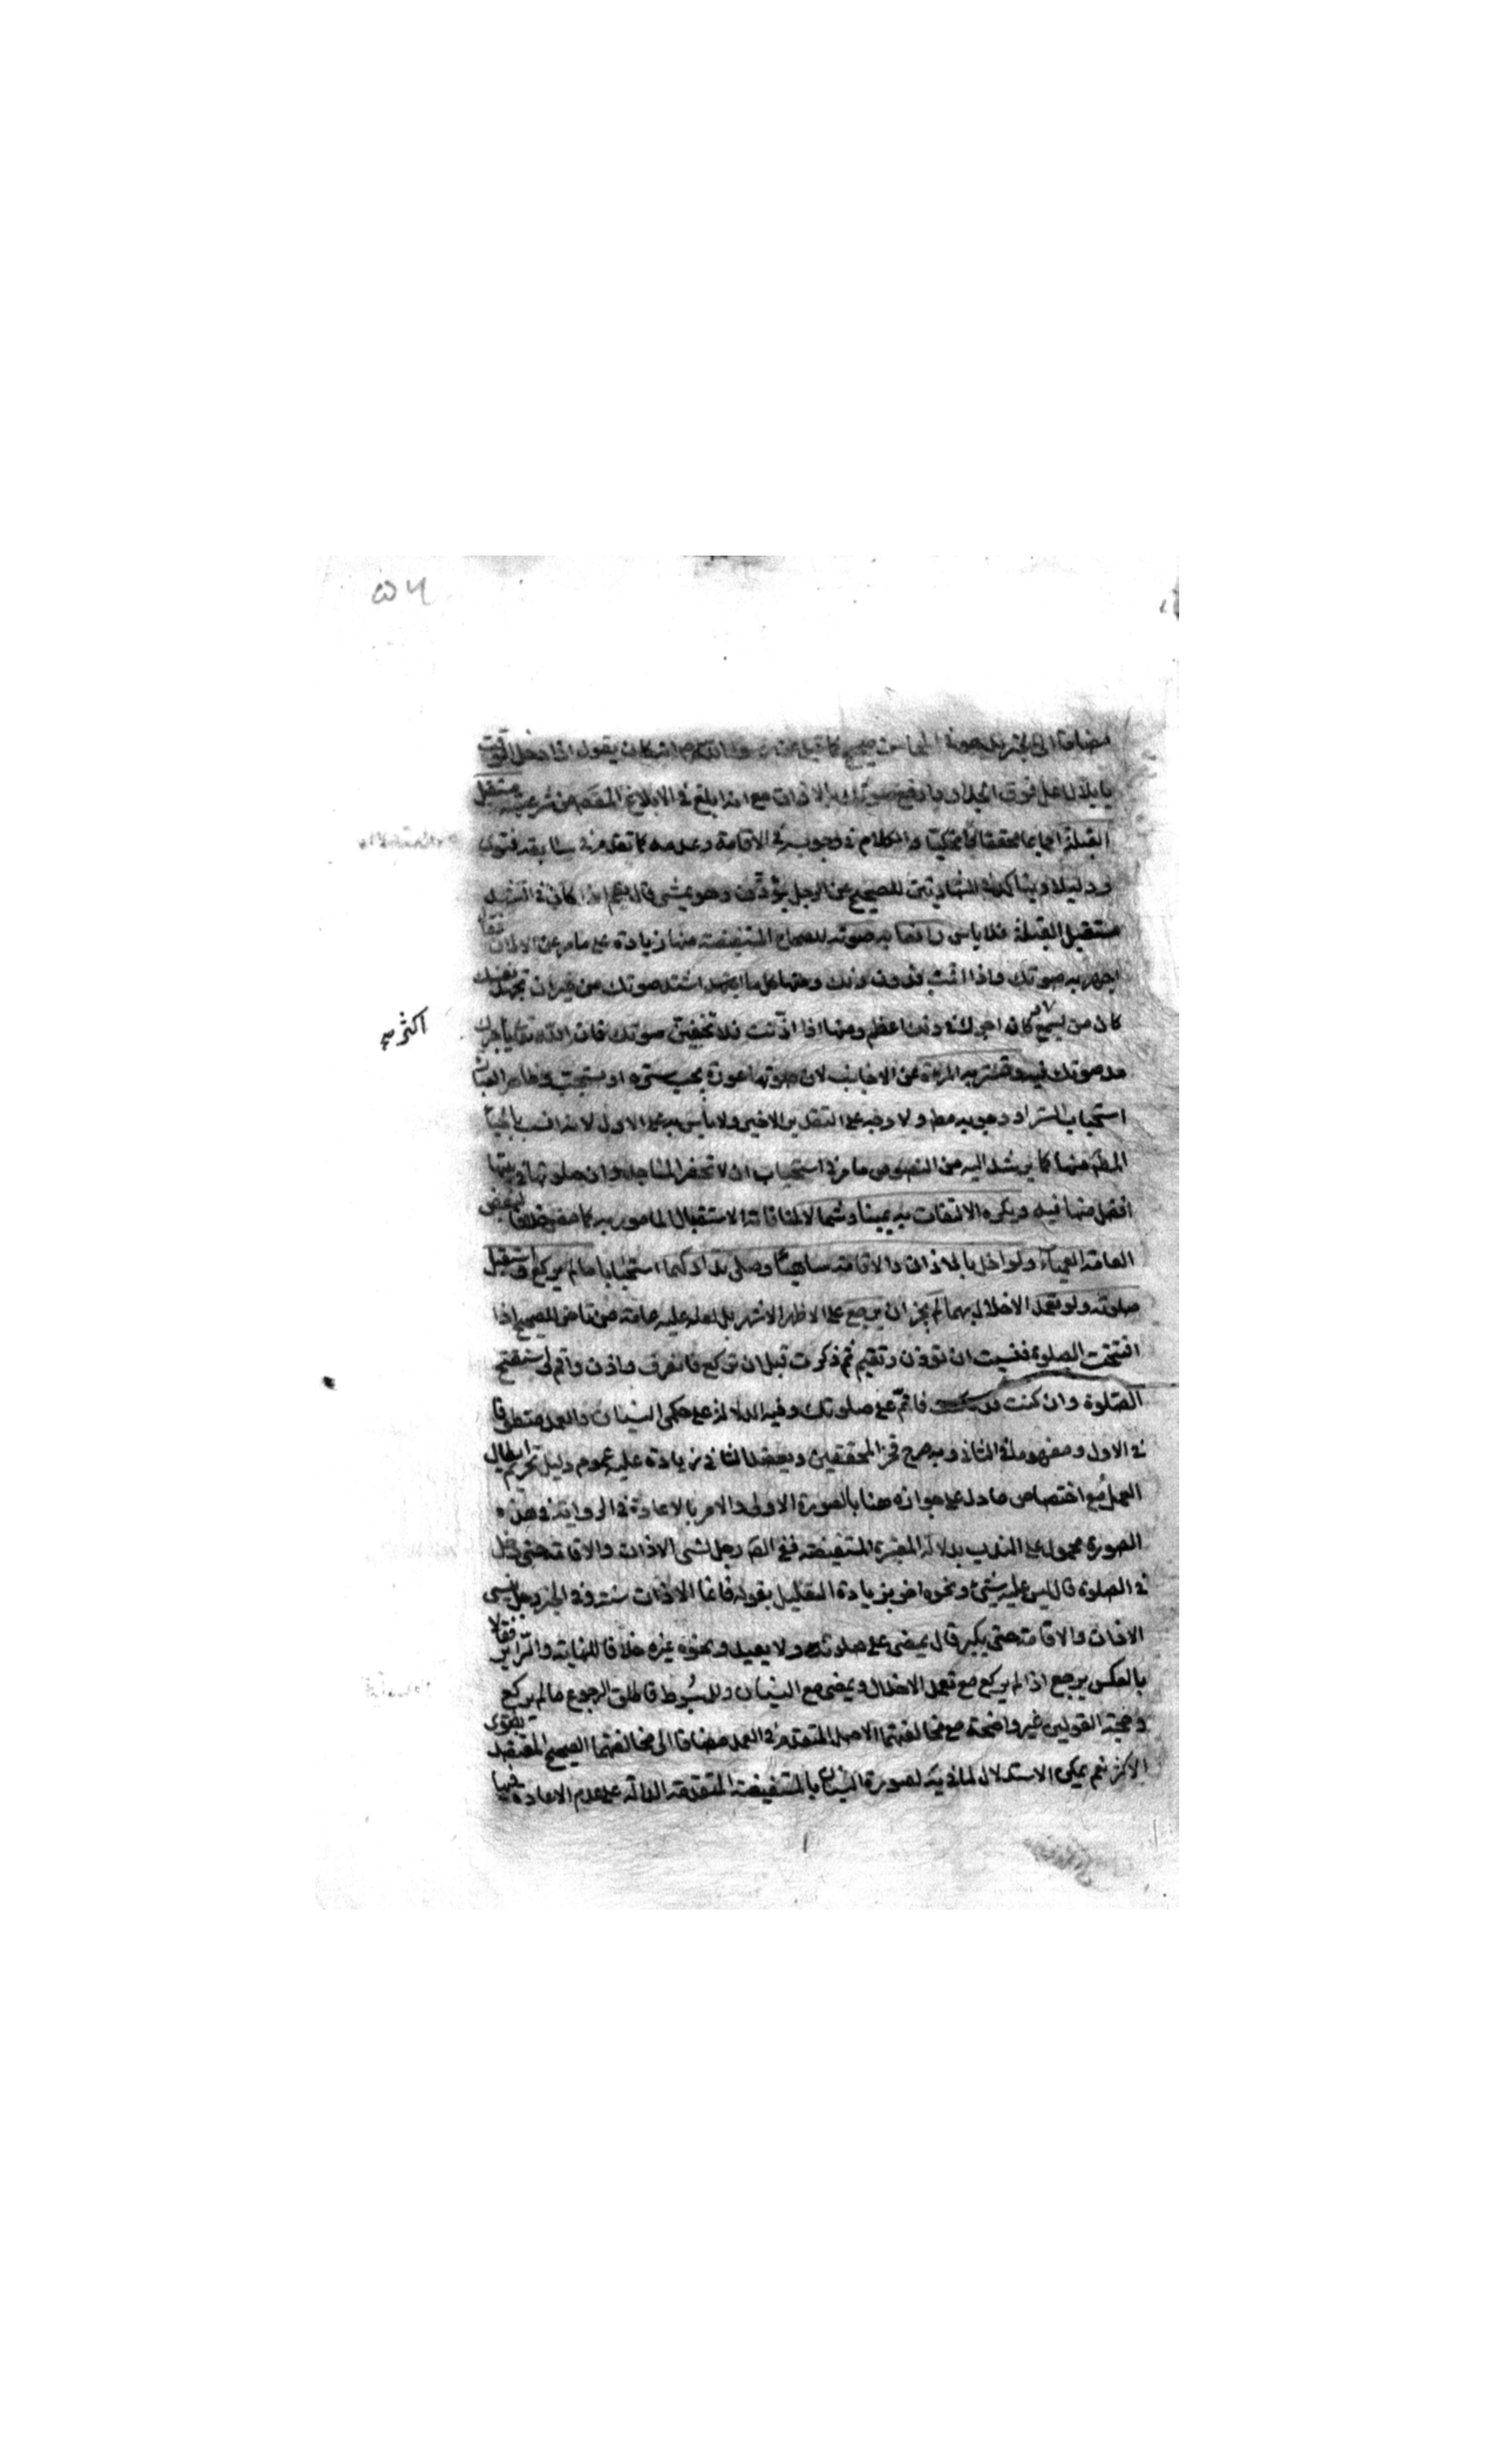 ۵۶
مضافا الى الخبرين صونه كما قيل انه كان يقول اذا دخل الوقت
يا بلال اعل فوق الجدار وارفع صوتك بالاذان مع انه ابلغ في الابلاغ المقصود من شرعيته مستقبل
القبلة اجماعا محققا محكيا والكلام في وجوبه في الاقامة وعدمه كما تقدم في سابقه فتوى
ودليلا ويتاكد في الشهادتين للصحيح عن الرجل يؤذن وهو يمشي قال نعم اذا كان في التشهد
مستقبل القبلة فلا باس رافعا به صوته للصحاح المستفيضة منها زيادة على ما مر عن الاذان فقال
اجهر به صوتك واذا اقمت فدون ذلك ومنها كل ما اشتد صوتك من غير ان تجهد نفسك
كان من يسمع كان اجرك في ذلك اعظم ومنها اذا اذنت فلا تخفين صوتك فان الله تعالى ياجرك
اكثر صح
مد صوتك فيه وتستر به المرءة عن الاجانب لان صوتها عورة يجب ستره او يستحب وظاهر العبارة
استحباب الستر او وجوبه مط ولا وجه على التقدير الاخير ولا باس به على الاول لانه انسب بالحياء
المط منها كما يرشد اليه من النصوص ما مر في استحباب ان لا تحضر المساجد وان صلوتها في بيتها
افضل منها فيه ويكره الالتفات به يمينا وشمالا لمنافاته الاستقبال المامور به كما مضى خلافا لبعض
العامة العمياء ولو اخل بالاذان والاقامة ساهيا وصلى تداركهما استحبابا ما لم يركع واستقبل
صلوته ولو تعمد الاخلال بهما لم يجز ان يرجع على الاظهر الاشهر بل لعله عليه عامة من تاخر للصحيح اذا
افتتحت الصلوة فنسيت ان تؤذن وتقيم ثم ذكرت قبل ان تركع فانصرف واذن واقم واستفتح
الصلوة وان كنت قد ركعت فاتم على صلوتك وفيه الدلالة على حكمي النسيان والعمد منطوقا
في الاول ومفهوما في الثاني وبه صرح فخر المحققين ويعضد الثاني زيادة عليه عموم دليل تحريم ابطال
العمل مع اختصاص ما دل على جوازه هنا بالصورة الاولى والامر بالاعادة في الرواية في هذه
الصورة محمول على الندب بدلالة المعتبرة المستفيضة ففي الصحيح رجل نسي الاذان والاقامة حتى دخل
في الصلوة قال ليس عليه شيئ ونحوه اخر بزيادة التعليل بقوله فانما الاذان سنة وفي الخبر رجل نسي
الاذان والاقامة حتى يكبر قال يمضي على صلوته ولا يعيد ونحوه غيره خلافا للنهاية والسرائر فقالا
بالعكس يرجع اذا لم يركع مع تعمد الاخلال ويمضي مع النسيان وللمبسوط فاطلق الرجوع ما لم يركع
وحجة القولين غير واضحة مع مخالفتهما الاصل المتقدم في العمد مضافا الى مخالفتهما الصحيح المعتضد بفتوى
الاكثر نعم يمكن الاستدلال لثانيه لصورة النسيان بالمستفيضة المتقدمة الدالة على عدم الاعادة فيها